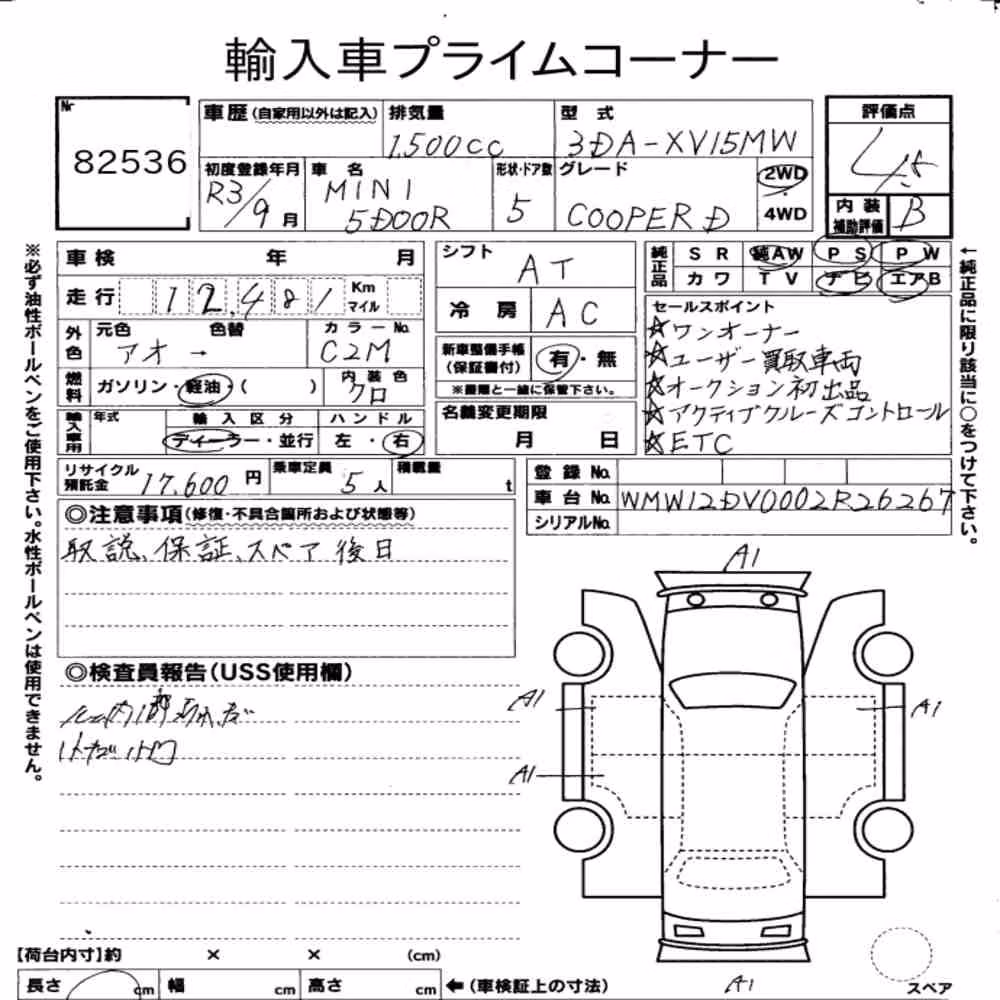 輸入車プライムコーナー
Nr
82536
車歴(自家用以外は記入)
排気量
1,500cc
型式
3DA-XV15MW
評価点
4.5
初度登録年月
R3/9月
車名
MINI
5DOOR
形状・ドア数
5
グレード
COOPER D
2WD
・
4WD
内装
補助評価
B
車検 年 月
シフト
AT
純正品
SR 純AW PS PW
カワ TV ナビ エアB
走行
12,481
Km
マイル
冷房
AC
セールスポイント
☆ワンオーナー
☆ユーザー買取車両
☆オークション初出品
☆アクティブクルーズコントロール
☆ETC
外色
元色 色替
アオ →
カラーNo.
C2M
新車整備手帳
(保証書付)
有・無
※書類と一緒に保管下さい。
燃料
ガソリン・軽油・( )
内装色
クロ
名義変更期限
月 日
輸入車用
年式
輸入区分
ディーラー・並行
ハンドル
左・右
リサイクル
預託金
17,600円
乗車定員
5人
積載量
t
登録No.
車台No.
WMW12DV0002R26267
シリアルNo.
◎注意事項(修復・不具合箇所および状態等)
取説、保証、スペア後日
※必ず油性ボールペンをご使用下さい。水性ボールペンは使用できません。
←純正品に限り該当に○をつけて下さい。
◎検査員報告(USS使用欄)
A1
A1
A1
A1
A1
【荷台内寸】約 × × (cm)
長さ cm 幅 cm 高さ cm ←(車検証上の寸法)
スペア